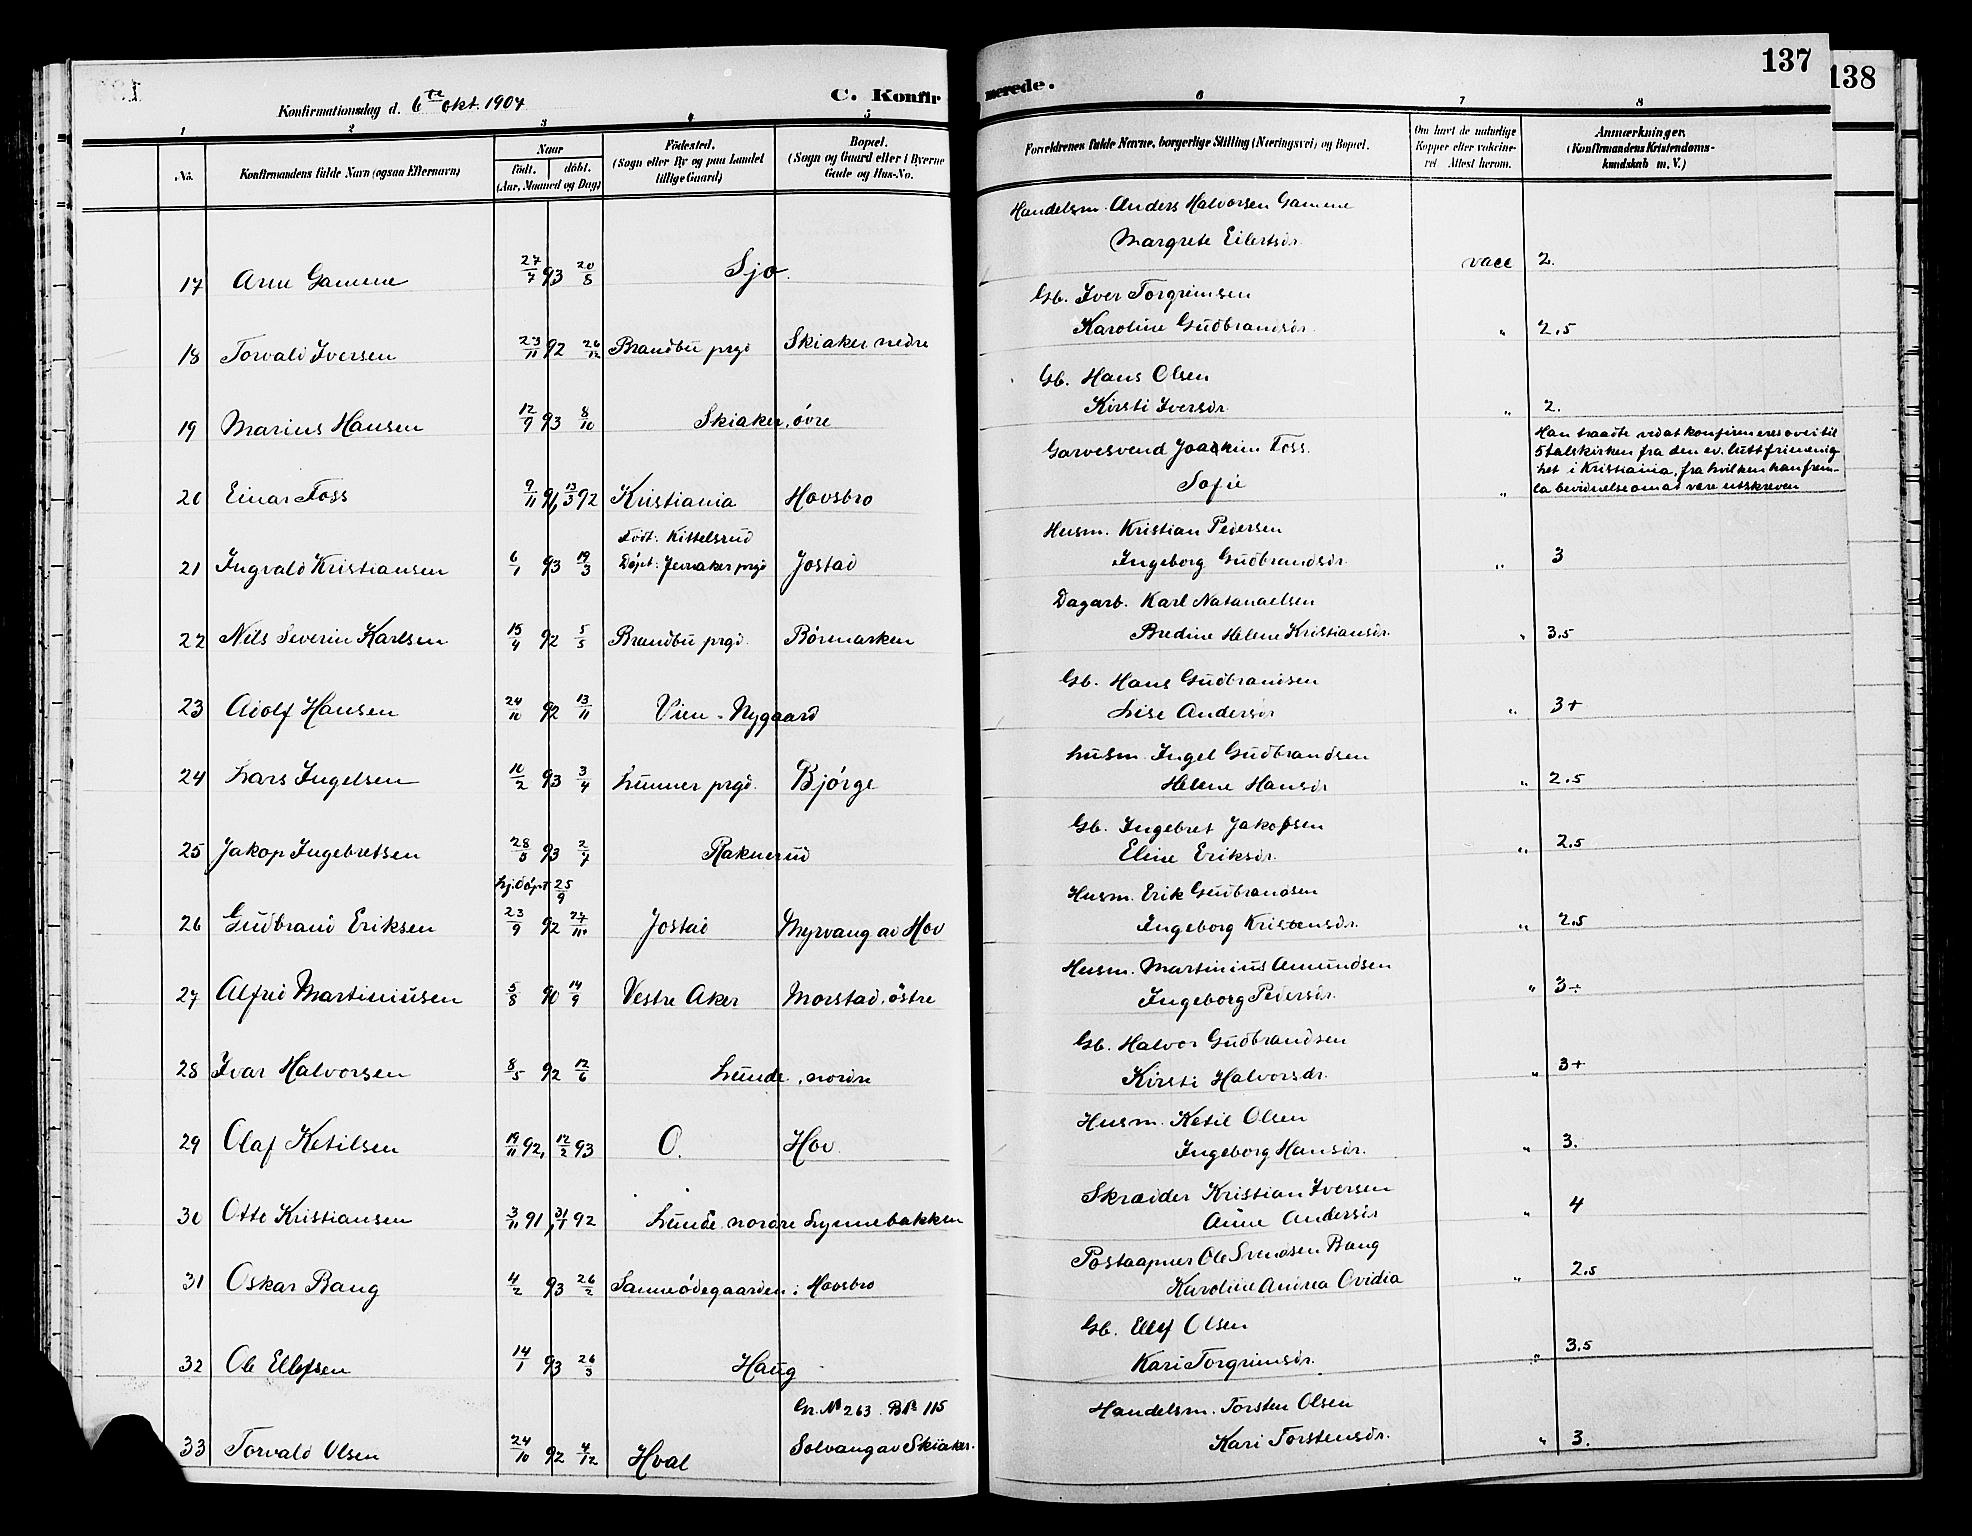 137
138
Konfirmationsdag d. 6te okt. 1907
C. Konfirmerede.
1 2 3 4 5 6 7 8
No. Konfirmandens fulde Navn (ogsaa Efternavn) Naar födt. döbt. (Aar, Maaned og Dag) Födested. (Sogn eller By og paa Landet tillige Gaard) Bopæl. (Sogn og Gaard eller i Byerne Gade og Hus-No. Forældrenes fulde Navne, borgerlige Stilling (Næringsvei) og Bopæl. Om havt de naturlige Kopper eller vaksineret. Attest herom. Anmærkninger. (Konfirmandens Kristendomskundskab m. V.)
Handelsm. Anders Halvorsen Gamme
Margrete Eilertsdr.
17 Arne Gamme 27/7 93 20/8 Sjo. vacc 2.
Gb. Iver Torgrimsen
Karoline Gudbrandsdr.
18 Torvald Iversen 23/11 92 26/12 Brandbu prgd Skiaker nedre " 2.5
Gb. Hans Olsen
Kirsti Iversdr.
19 Marius Hansen 12/9 93 8/10 Skiaker, övre " 2.
Garvesvend Joackim Foss.
Sofie
20 Einar Foss 9/11 91, 13/3 92 Kristiania Hovsbro "
Han traadte ved at konfirmeres over til
Stalskirken fra den ev. lutt frimenig-
het i Kristiania, fra hvilken han frem-
la bevidnelse om at være utskreven
Husm. Kristian Pedersen
Ingeborg Gudbrandsdr.
Födt: Kittelsrud
21 Ingvald Kristiansen 6/1 93 19/3 Döpt: Jevnaker prgd Jostad " 3
Dagarb. Karl Natanaelsen
Bredine Helene Kristiansdr.
22 Nils Severin Karlsen 15/4 92 5/5 Brandbu prgd. Börmarken " 3.5
Gb. Hans Gudbrandsen
Lise Andersdr
23 Adolf Hansen 24/10 92 13/11 Vien-Nygaard " 3+
Husm. Ingel Gudbrandsen
Helene Hansdr
24 Lars Ingelsen 10/2 93 3/4 Lunner prgd. Bjørge " 2.5
Gb. Ingebret Jakobsen
Eline Eriksdr.
25 Jakop Ingebretsen 28/5 93 2/7 Raknerud " 2.5
Husm. Erik Gudbrandsen
Ingeborg Kristensdr.
hj.döpt 25/9
26 Gudbrand Eriksen 23/9 92 27/11 Jostad Myrvang av Hov " 2.5
Husm. Martinius Amundsen
Ingeborg Pedersdr.
27 Alfred Martiniusen 5/8 90 14/9 Vestre Aker Morstad, östre " 3÷
Gb. Halvor Gudbrandsen
Kirsti Halvorsdr.
28 Ivar Halvorsen 8/5 92 12/6 Lunde, nordre " 3+
Husm. Ketil Olsen
Ingeborg Hansdr.
29 Olaf Ketilsen 19/11 92, 12/2 93 O. Hov " 3.
Skrædder Kristian Iversen
Anne Andersdr
30 Otto Kristiansen 3/11 91, 31/1 92 Lunde nordre Lynnebakken " 4
Postaapner Ole Svendsen Bang
Karoline Andrea Ovidia
31 Oskar Bang 4/2 93 26/2 Sanneödegaarden: Hovsbro " 2.5
Gb. Ellef Olsen
Kari Torgrimsdr.
32 Ole Ellefsen 14/1 93 26/3 Haug " 3.5
Handelsm. Torsten Olsen
Kari Torstensdr.
Gr. No 263. B No 115
33 Torvald Olsen 24/10 92 4/12 Hval Solvang av Skiaker. " 3.